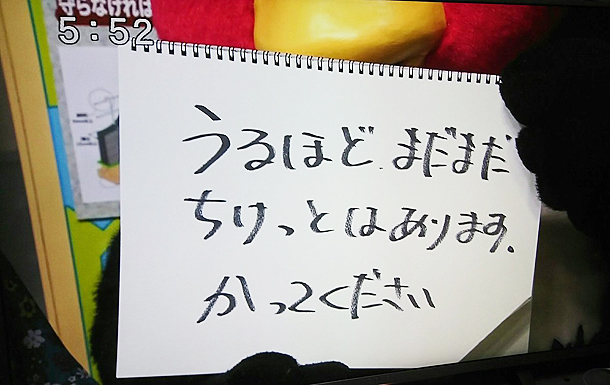 守らなければ
5:52
うるほど まだまだ
ちけっとはあります。
かってください